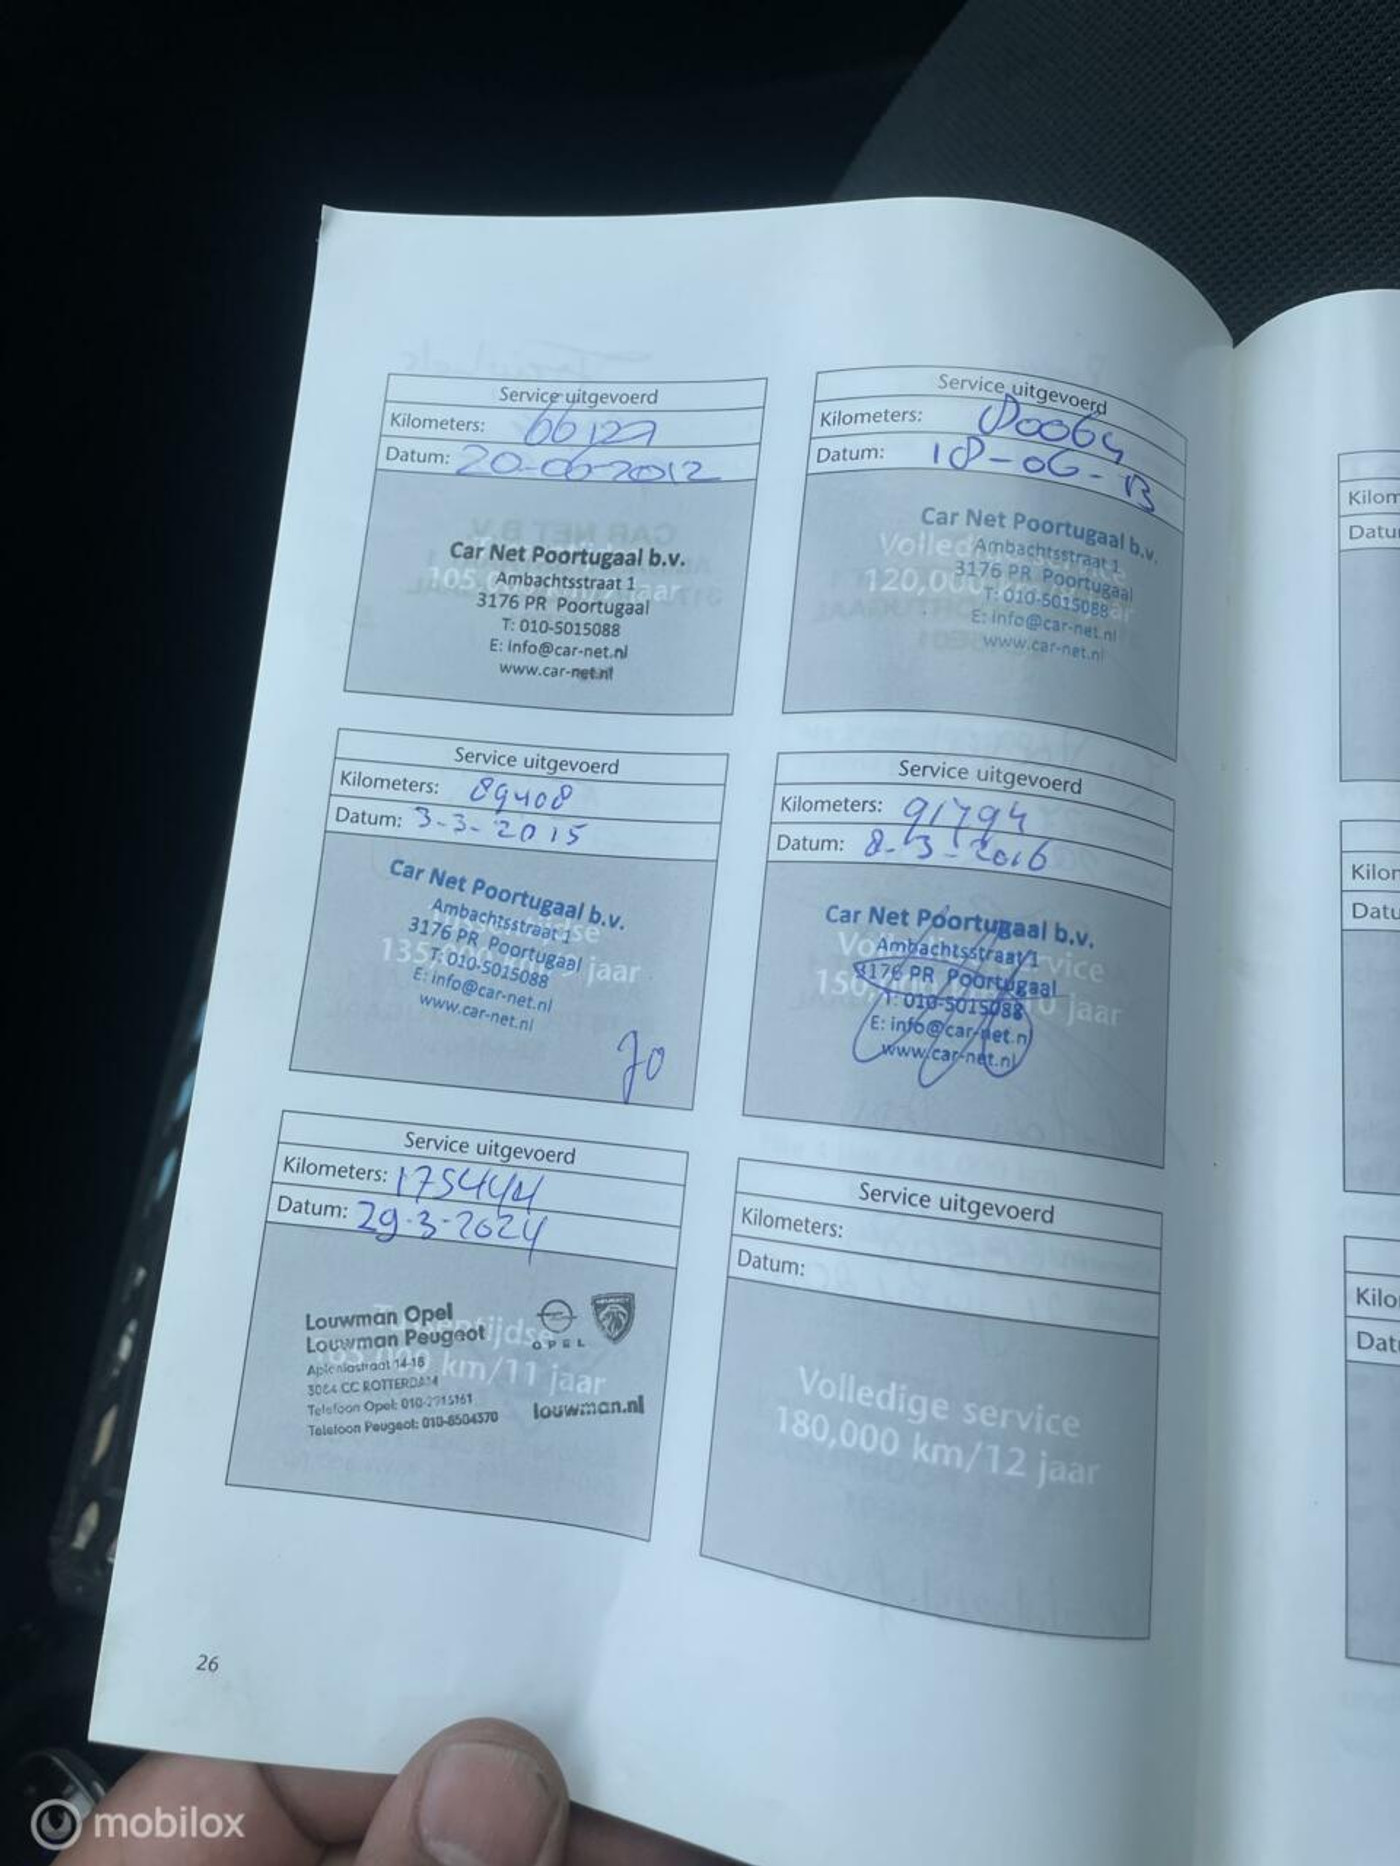 Service uitgevoerd
Kilometers: 66127
Datum: 20-06-2012
Car Net Poortugaal b.v.
Ambachtsstraat 1
105.000 km/7 jaar
3176 PR Poortugaal
T: 010-5015088
E: info@car-net.nl
www.car-net.nl
Service uitgevoerd
Kilometers: 80064
Datum: 18-06-13
Car Net Poortugaal b.v.
Ambachtsstraat 1
120,000
3176 PR Poortugaal
T: 010-5015088
E: info@car-net.nl
www.car-net.nl
Service uitgevoerd
Kilometers: 89408
Datum: 3-3-2015
Car Net Poortugaal b.v.
Ambachtsstraat 1
3176 PR Poortugaal
135 jaar
T: 010-5015088
E: info@car-net.nl
www.car-net.nl
Jo
Service uitgevoerd
Kilometers: 91794
Datum: 8-3-2016
Car Net Poortugaal b.v.
Ambachtsstraat 1
service
3176 PR Poortugaal
10 jaar
T: 010-5015088
E: info@car-net.nl
www.car-net.nl
Service uitgevoerd
Kilometers: 175444
Datum: 29-3-2024
Louwman Opel
Louwman Peugeot
OPEL
km/11 jaar
3064 CC ROTTERDAM
Telefoon Opel: 010-
Telefoon Peugeot: 010-8504370
louwman.nl
Service uitgevoerd
Kilometers:
Datum:
Volledige service
180,000 km/12 jaar
26
Kilom
Datu
Kilor
Datu
Kilo
Dat
mobilox